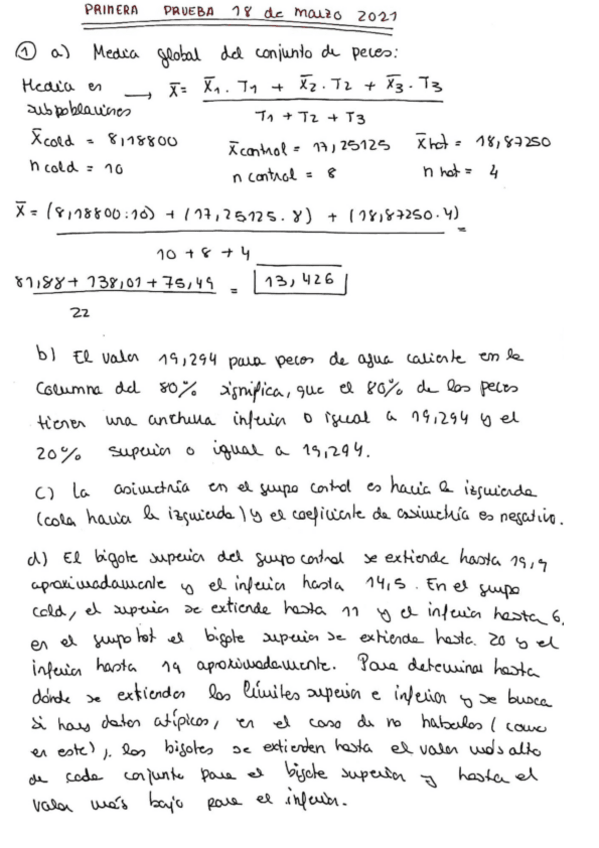 PRIMERA PRUEBA 18 de marzo 2021
① a) Media global del conjunto de peces:
Media en subpoblaciones → X̄ = X̄₁ · T₁ + X̄₂ · T₂ + X̄₃ · T₃
T₁ + T₂ + T₃
X̄cold = 8,18800 X̄control = 17,25125 X̄hot = 18,87250
n cold = 10 n control = 8 n hot = 4
X̄ = (8,18800·10) + (17,25125 · 8) + (18,87250·4) =
10 + 8 + 4
81,88 + 138,01 + 75,49 = 13,426
22
b) El valor 19,294 para peces de agua caliente en la
columna del 80% significa, que el 80% de los peces
tienen una anchura inferior o igual a 19,294 y el
20% superior o igual a 19,294.
c) La asimetría en el grupo control es hacia la izquierda
(cola hacia la izquierda) y el coeficiente de asimetría es negativo.
d) El bigote superior del grupo control se extiende hasta 19,9
aproximadamente y el inferior hasta 14,5. En el grupo
cold, el superior se extiende hasta 11 y el inferior hasta 6,
en el grupo hot el bigote superior se extiende hasta 20 y el
inferior hasta 19 aproximadamente. Para determinar hasta
dónde se extienden los límites superior e inferior y se busca
si hay datos atípicos, en el caso de no haberlos (como
en este), los bigotes se extienden hasta el valor más alto
de cada conjunto para el bigote superior y hasta el
valor más bajo para el inferior.